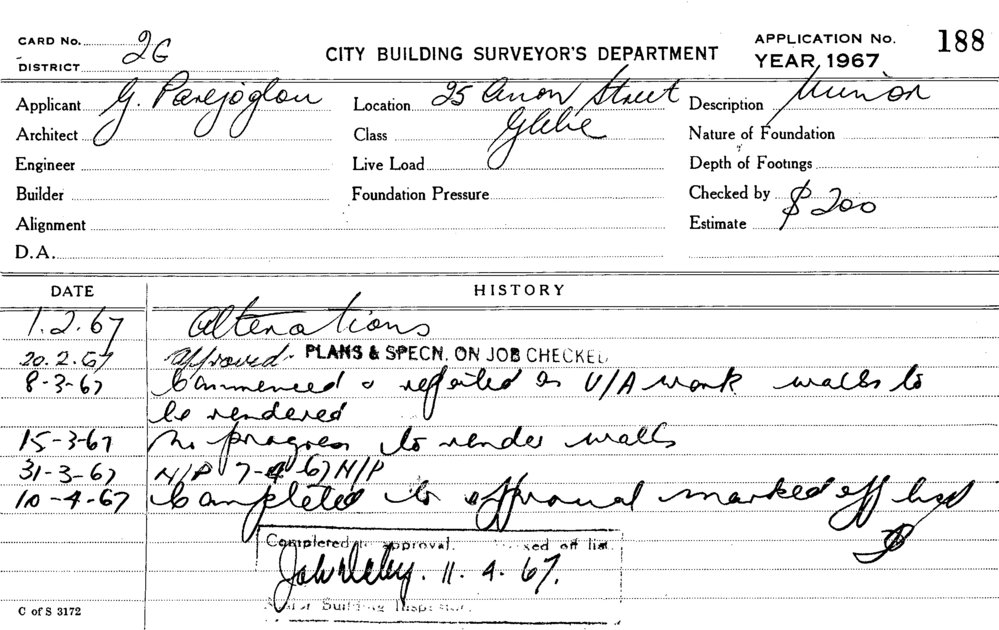 CARD No. 2G
DISTRICT
CITY BUILDING SURVEYOR'S DEPARTMENT
APPLICATION No. 188
YEAR 1967
Applicant G. Parejoglou Location 25 Avon Street Description Minor
Architect Class Glebe Nature of Foundation
Engineer Live Load Depth of Footings
Builder Foundation Pressure Checked by
Alignment Estimate $200
D.A.
DATE HISTORY
1.2.67 Alterations
20.2.67 Approved. PLANS & SPECN. ON JOB CHECKED
8-3-67 Commenced & U/A work walls to
be rendered
15-3-67 No progress to render walls
31-3-67 N/P 7-4-67 N/P
10-4-67 Completed to approval marked off list
Completed to approval. off list.
11.4.67.
Building Inspector.
C of S 3172